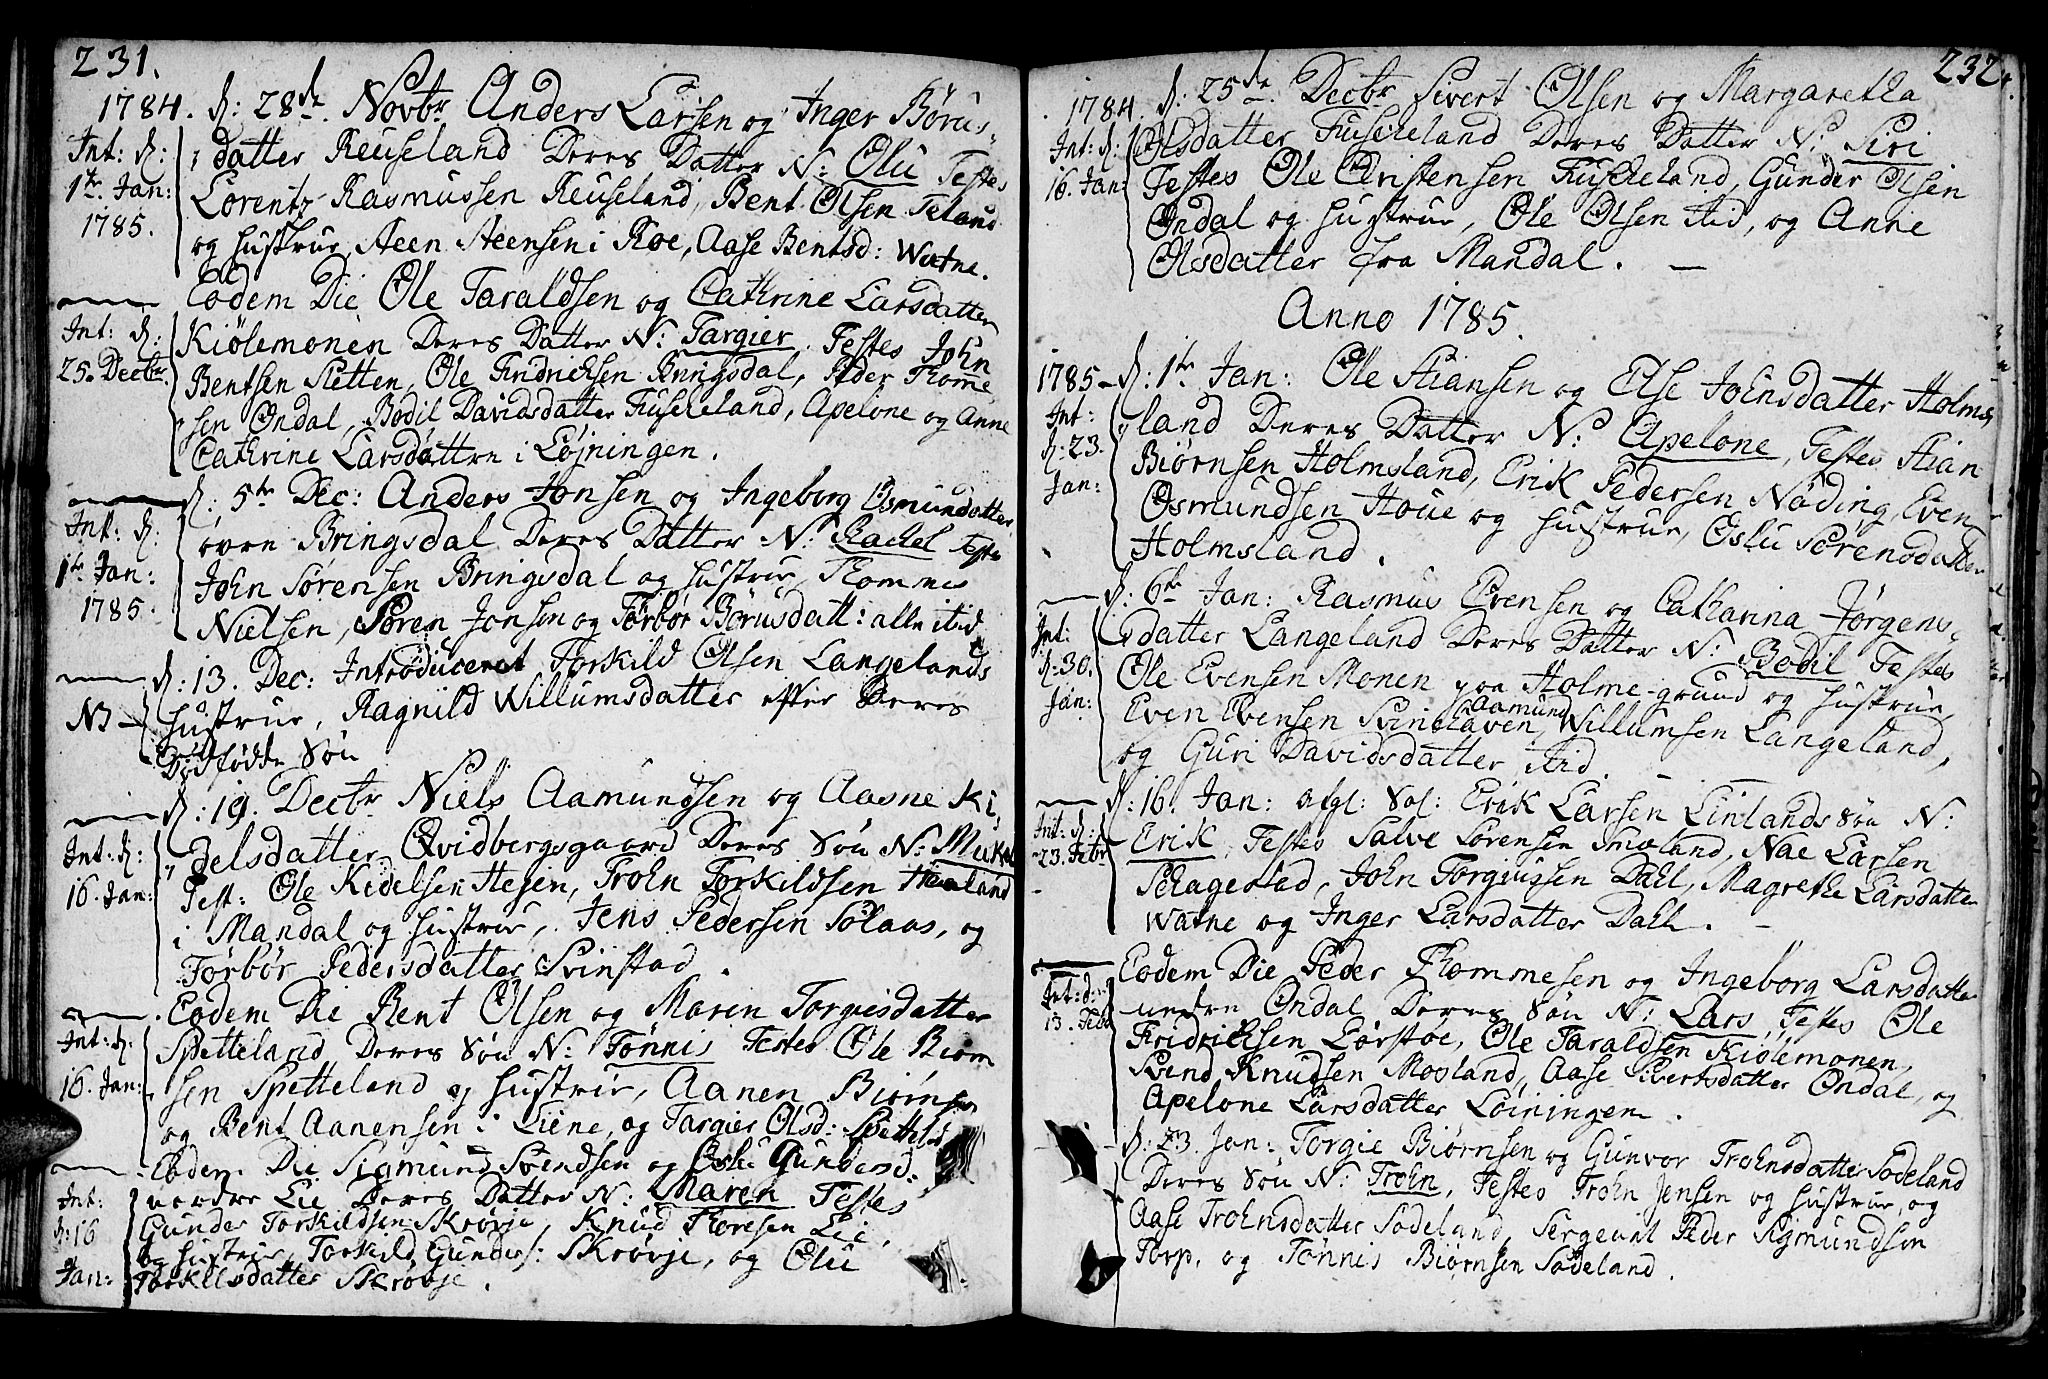 231.
1784. d: 28de Novbr Anders Larsen og Inger Børus-
Int: d: datter Reuseland Deres Datter N: Olu Testes
1te Jan: Lorentz Rasmussen Reuseland, Bent Olsen Teland
1785. og hustrue, Steen Steensen i Roe, Aase Bentsd: Watne.
Eodem Die Ole Taraldsen og Cathrine Larsdatter
Int: d: Kiölemonen Deres Datter N: Targier. Testes John
25. Decbr. Bentsen Sletten, Ole Fridrichsen Bringsdal, Peder Thome
sen Öndal, Bodil Davidsdatter Fuskeland, Apelone og Anne
Cathrine Larsdøttre i Løjningen.
d: 5te Dec: Anders Jonsen og Ingeborg Osmundatter
Int: d: øvre Bringsdal Deres Datter N: Rachel Testes
1te Jan: John Sørensen Bringsdal og hustrue, Thommes
1785. Nielsen, Søren Jonsen og Tørbør Børusdatt: alle itid
d: 13. Dec: Introduceret Torkild Olsen Langelands
NB hustrue, Ragnild Willumsdatter efter Deres
Dödfödde Sön
d: 19. Decbr Niels Aamundsen og Aasne Ki,
Int: d: delsdatter Qvidbergsgaard Deres Sön N:
16. Jan: Test: Ole Kidelsen Hegen, Trohn Torkildsen
i Mandal og hustrue, Jens Pedersen Solaas, og
Tørbør Pedersdatter Svinstad.
Eodem Die Bent Olsen og Maren Torgiusdatter
Int: d: Spetteland Deres Sön N: Tönnis Testes Ole Biörn
16. Jan: sen Spetteland og hustrue, Aanen Biörnsen
og Bent Aanensen i Liene, og Targier Olsd: Spetteld
Eodem Die Sigmund Svendsen og Gundersd.
Int: nordre Lie Deres Datter N: Maren Testes
d: 16 Gunder Torkildsen Skrövje, Knud Thoresen Lie
Jan: og hustrue, Torkild Gunders: Skrövje, og Olu
Torkelsdatter Skrövje.
232.
1784 d: 25de Decbr Sivert Olsen og Margaretha
Int: d: Olsdatter Fuskeland Deres Datter N: Siri
16. Jan: Testes Ole Christensen Fuskeland, Gunder Olsen
Öndal og hustrue, Ole Olsen Itid, og Anne
Olsdatter fra Mandal.
Anno 1785.
1785 d: 1te Jan: Ole Stiansen og Else Johnsdatter Holms
Int: land Deres Datter N: Apelone, Testes Stian
d: 23. Biørnsen Holmsland, Erik Pedersen Nöding, Even
Jan: Osmundsen Houe og hustrue, Oslu Sørensdatter
Holmsland.
d: 6te Jan: Rasmus Evensen og Catharina Jørgens-
Int: datter Langeland Deres Datter N: Bodil Testes
d: 30. Ole Evensen Monen paa Holme-grund og hustrue,
Jan: Even Evensen Svinehaven, Aamund Willumsen Langeland,
og Guri Davidsdatter itid.
d: 16. Jan: afgl: Sol: Erik Larsen Linlands Sön N:
Int: d: Erik, Testes Salve Sørensen Smøland, Nae Larsen
23. Febr Schagestad, John Torgiusen Dahl, Magrethe Larsdatter
Watne og Inger Larsdatter Dahl.
Eodem Die Peder Thommesen og Ingeborg Larsdatter
Int: d: nedre Öndal Deres Sön N: Lars, Testes Ole
13. Feb: Fridrichsen Lörstøe, Ole Taraldsen Kiölemonen,
Svend Knudsen Mosland, Aase Sivertsdatter Öndal, og
Apelone Larsdatter Löiningen.
d: 23. Jan: Torgie Biørnsen og Gunvor Trohnsdatter Södeland
Deres Sön N: Trohn, Testes Trohn Jensen og hustrue, og
Aase Trohnsdatter Södeland, Sergeant Peder Sigmundsen
Torp, og Tönnis Biørnsen Södeland.